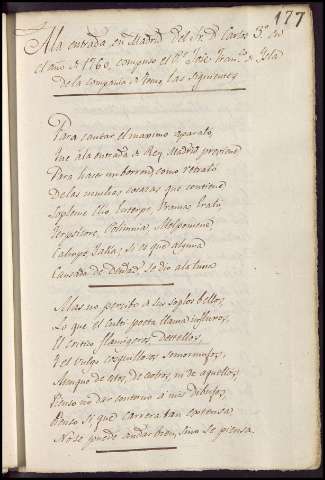 177
A la entrada en Madrid del Sr. D. Carlos 3º en
el año de 1760, compuso el Pe. José Franco. de Isla
de la compañia de Jesus, las siguientes
Para cantar el maximo aparato,
Que á la entrada de Rey Madrid previene
Para hacer un borron, como retrato
De las muchas cosazas que contiene
Clio, Euterpe, Urania, Erato
Terpsicore, Polimnia, Melpomene,
Caliope, Talia; si es que alguna
Cansada de no dio a la luna
Mas no percibo a los soplos bellos,
Lo que el culti-poeta llama influxos,
Ni entiendo flamigeros, destellos,
Ni el
Aunque de estos, de estotros, ni de aquellos,
Pienso no dar contorno á mis dibujos;
Pienso si, que carrera tan extensa,
No se puede andar bien, sino se piensa.